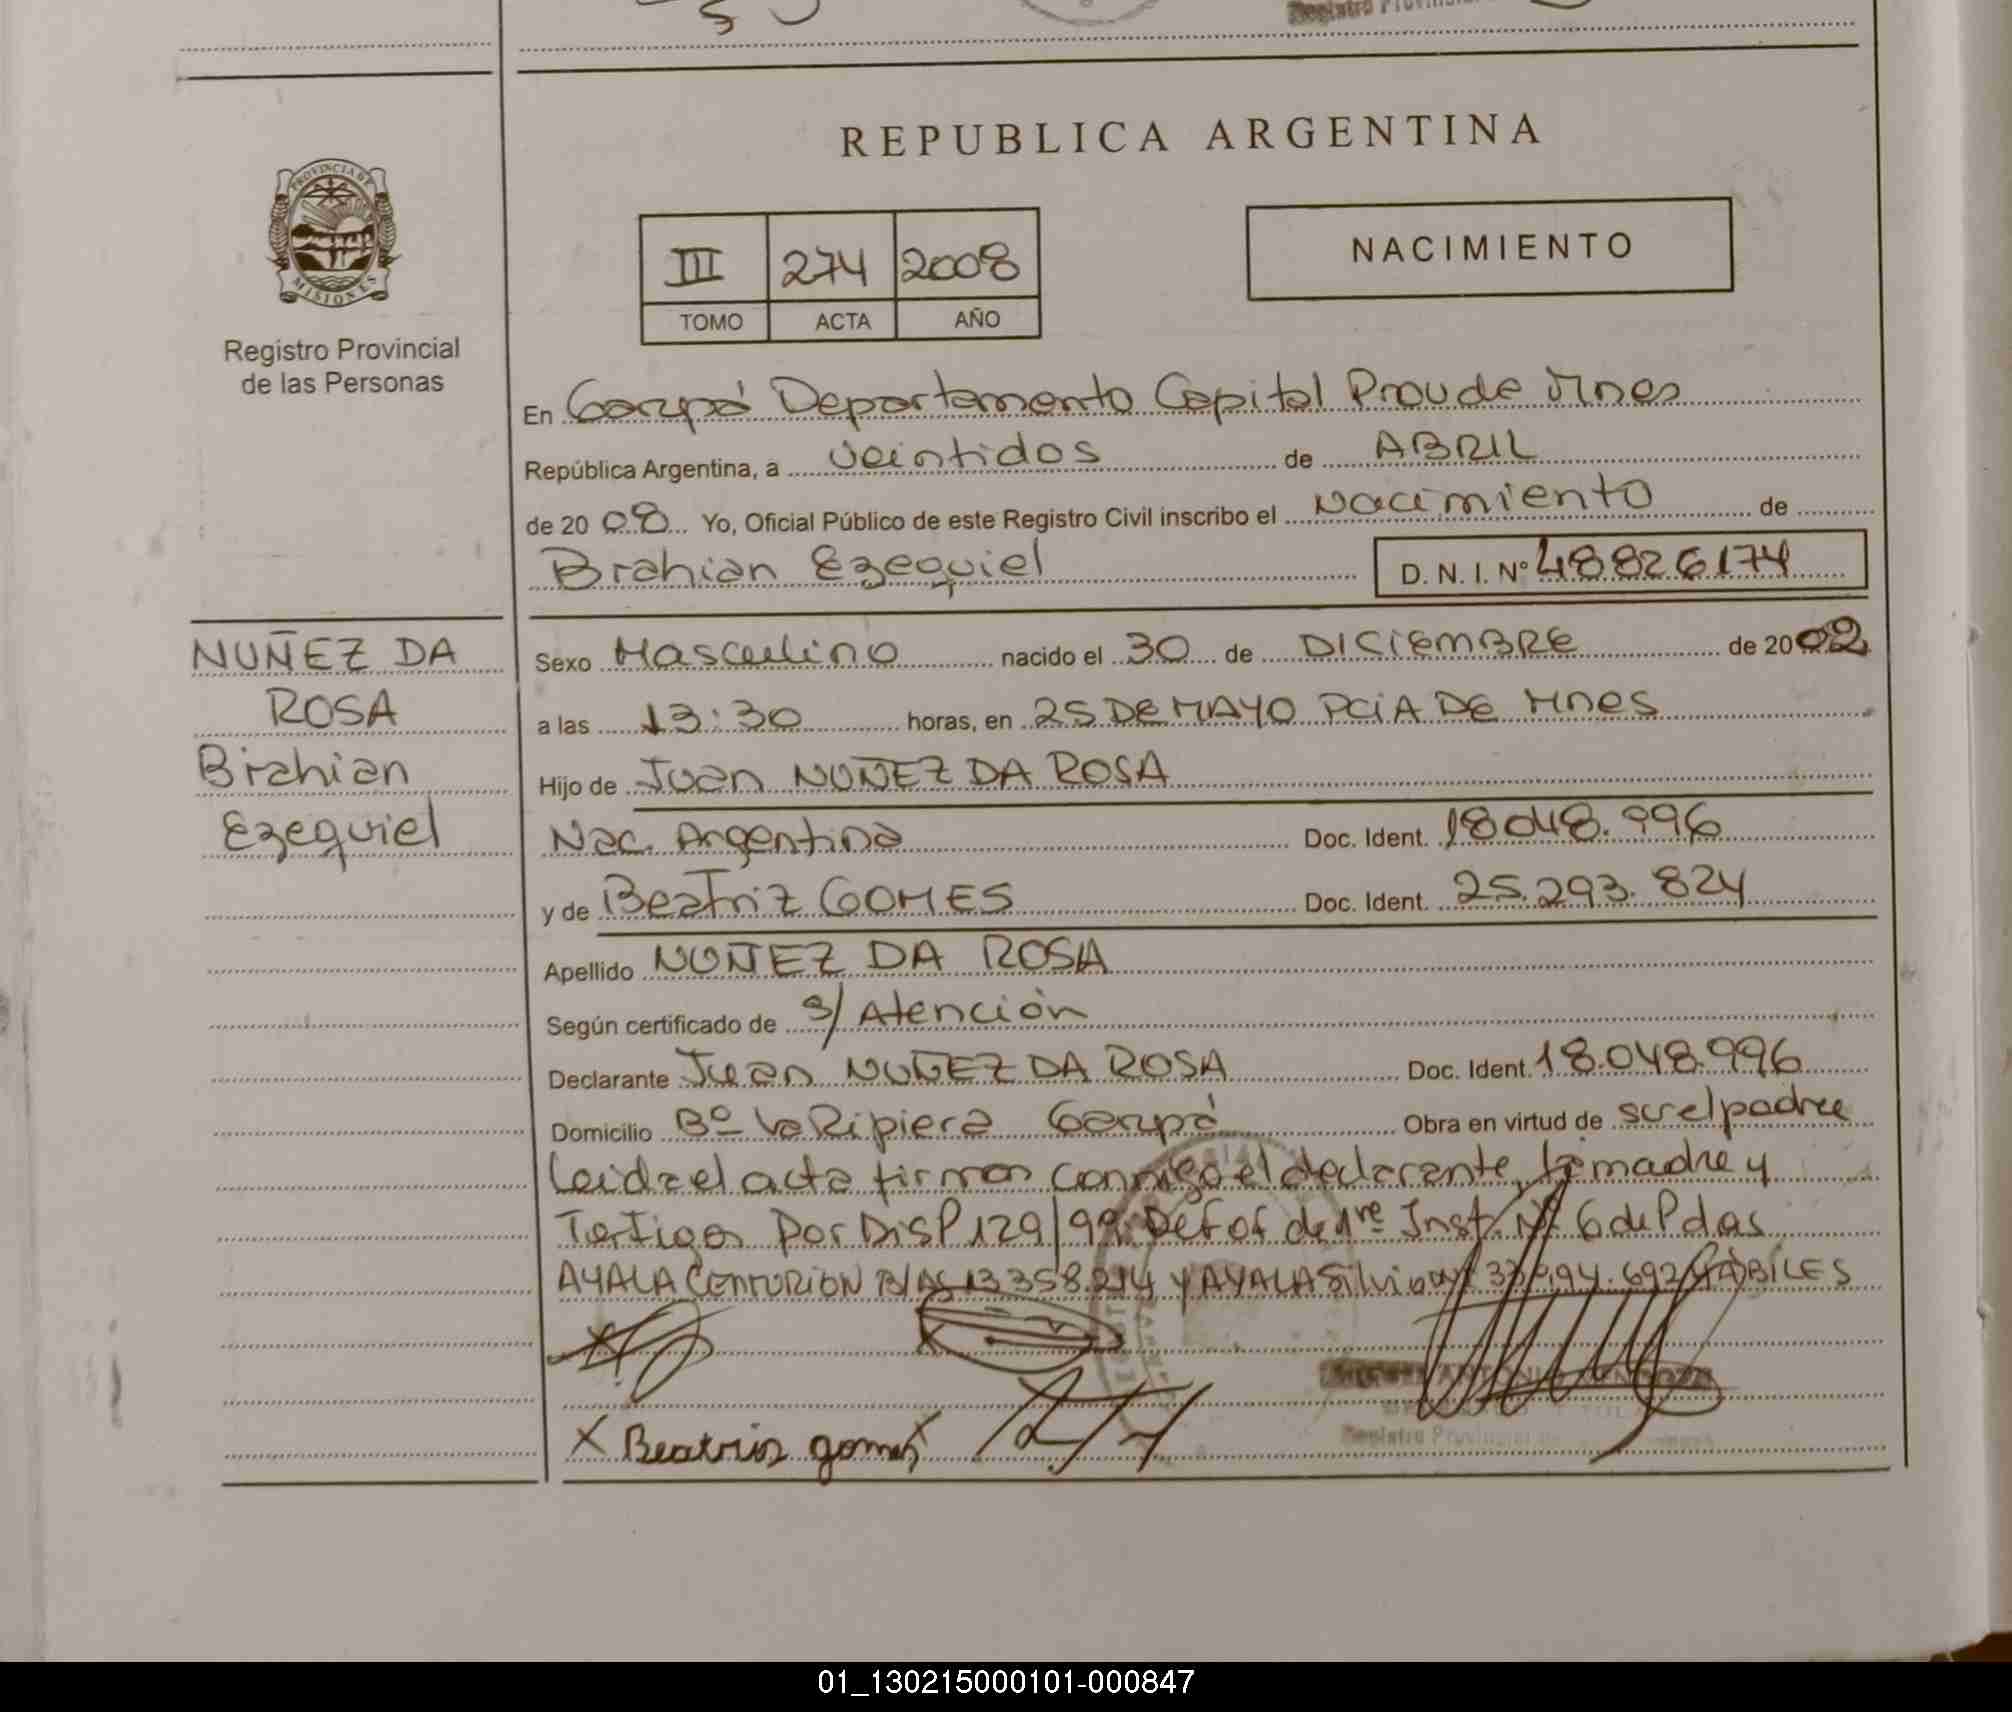 REPUBLICA ARGENTINA
PROVINCIA DE
MISIONES
Registro Provincial
de las Personas
III 274 2008
TOMO ACTA AÑO
NACIMIENTO
En Garupá Departamento Capital Prov de Mnes
República Argentina, a veintidos de ABRIL
de 20 08 Yo, Oficial Público de este Registro Civil inscribo el Nacimiento de
Brahian Ezequiel D. N. I. Nº 48826174
NUÑEZ DA
ROSA
Brahian
Ezequiel
Sexo Masculino nacido el 30 de DICIEMBRE de 2002
a las 13:30 horas, en 25 DE MAYO PCIA DE Mnes
Hijo de Juan NUÑEZ DA ROSA
Nac. Argentina Doc. Ident. 18.048.996
y de Beatriz GOMES Doc. Ident. 25.293.824
Apellido NUÑEZ DA ROSA
Según certificado de s/ Atención
Declarante Juan NUÑEZ DA ROSA Doc. Ident. 18.048.996
Domicilio Bº La Ripiera Garupá Obra en virtud de ser el padre
Leida el acta firman conmigo el declarante, la madre y
Testigos Por DISP 129/99. Def of de 1re Inst. Nº 6 de Pdas
AYALA CENTURION BLAS 13358.214 y AYALA Silvio HÁBILES
X X
X Beatris gomes X
Registro Provincial
01_130215000101-000847